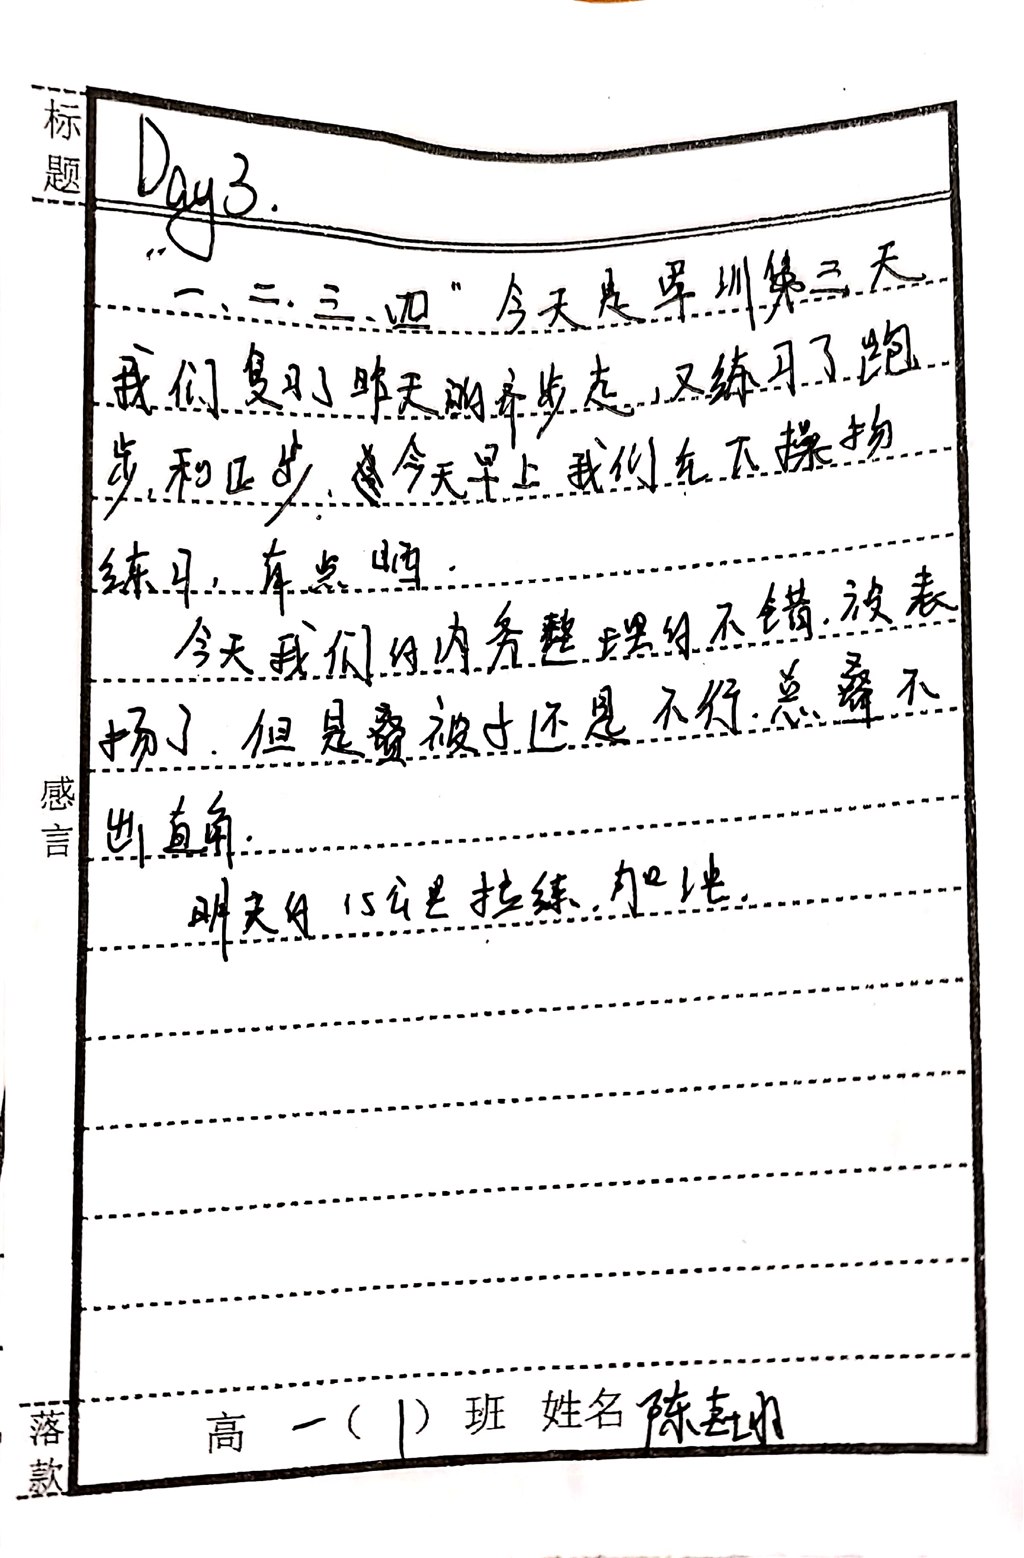 标题
Day3.
“一、二、三、四” 今天是军训第三天
我们复习了昨天的齐步走,又练习了跑
步,和正步,今天早上我们在下操场
练习,有点晒.
今天我们的内务整理的不错,被表
扬了.但是叠被子还是不行.总叠不
出直角.
明天的15公里拉练,加油.
感言
落款
高一(1)班 姓名 陈